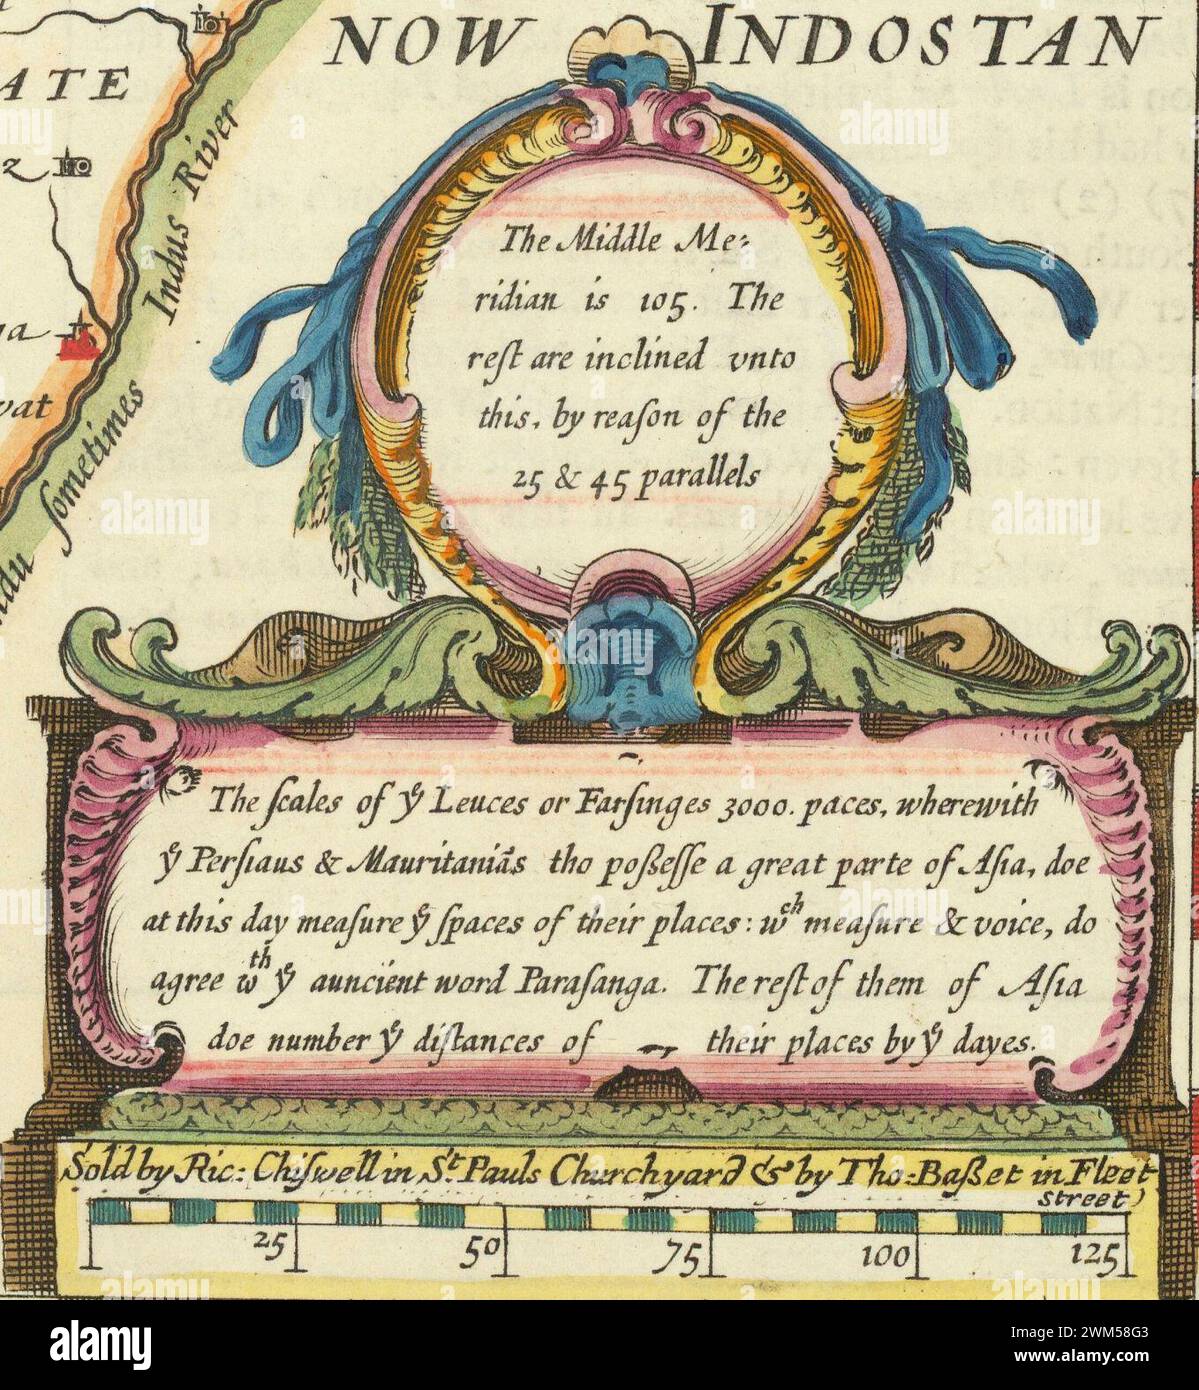 NOW INDOSTAN
ATE
Indus River
ſometimes
The Middle Me:
ridian is 105. The
reſt are inclined vnto
this, by reaſon of the
25 & 45 parallels
The ſcales of yͤ Leuces or Farſinges 3000. paces, wherewith
yͤ Perſiaus & Mauritaniãs tho poßeſſe a great parte of Aſia, doe
at this day meaſure yͤ ſpaces of their places: wᶜʰ meaſure & voice, do
agree wᵗʰ yͤ auncïent word Paraſanga. The reſt of them of Aſia
doe number yͤ diſtances of their places by yͤ dayes.
Sold by Ric: Chiſwell in Sᵗ Pauls Churchyard & by Tho: Baßet in Fleet
street)
25 50 75 100 125
alamy
Image ID: 2WM58G3
www.alamy.com